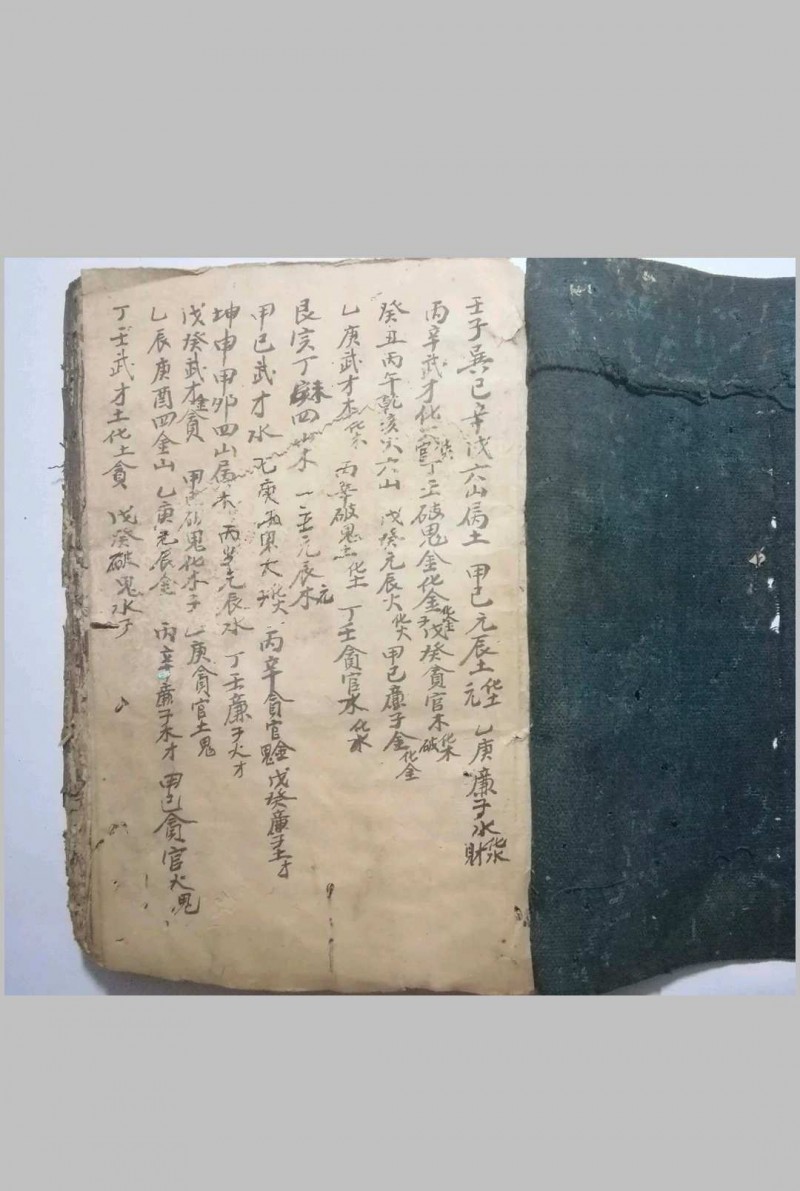 壬子巽巳辛戌六山属土 甲己元辰土化土元 乙庚廉子水化水財
丙辛武才化 丁壬破鬼金化金 戊癸貪官木化木破
癸丑丙午乾亥火六山 戊癸元辰火化火 甲己廉子金化金
乙庚武才木 丙辛破鬼土化土 丁壬貪官水化水
艮寅丁未四山木 丁壬元辰木元
甲己武才水 乙庚 火化火 丙辛貪官金鬼 戊癸廉子土才
坤申甲卯四山属水 丙辛元辰水 丁壬廉子火才
戊癸武才貪 甲己破鬼化木子 乙庚貪官土鬼
乙辰庚酉四金山 乙庚元辰金 丙辛廉子木才 甲己貪官火鬼
丁壬武才土化土貪 戊癸破鬼水子